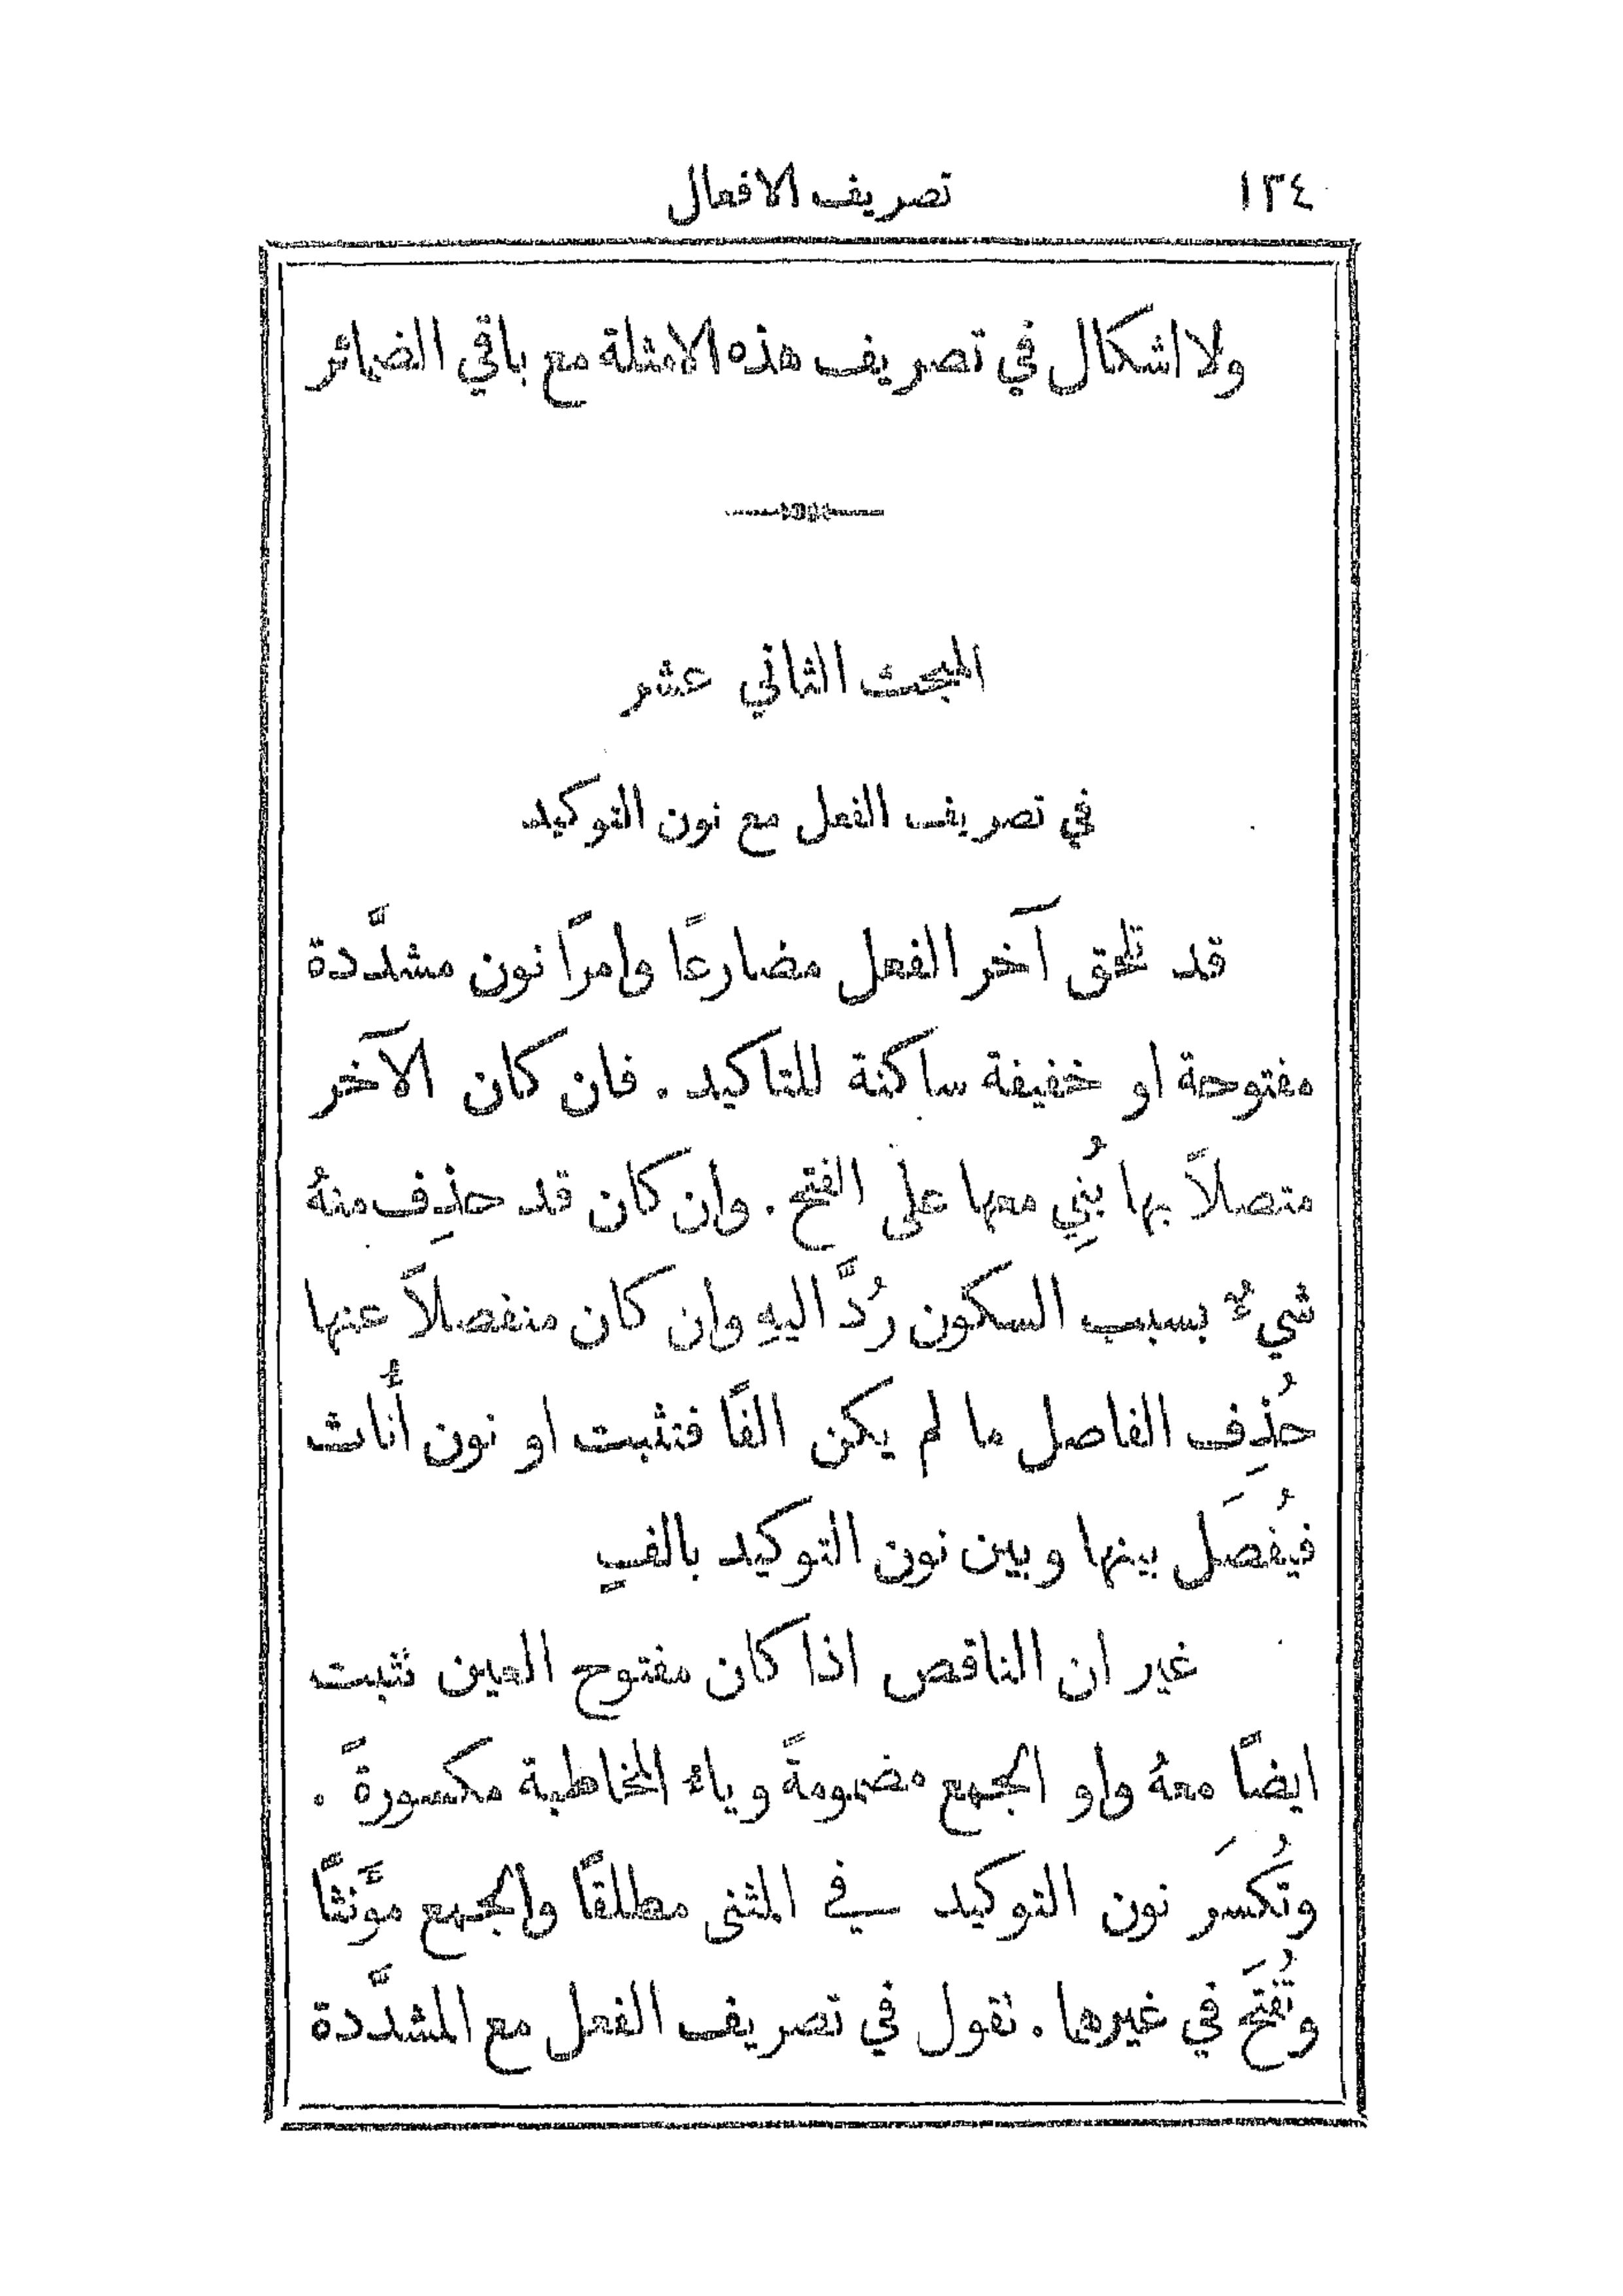 ١٣٤ تصريف الافعال
ولا اشكال في تصريف هذه الامثلة مع باقي الضمائر
المبحث الثاني عشر
في تصريف الفعل مع نون التوكيد
قد تلحق آخر الفعل مضارعًا وامرًا نون مشدَّدة
مفتوحة او خفيفة ساكنة للتاكيد . فان كان الآخر
متصلاً بها بُنِي معها على الفتح . وان كان قد حذِف منهُ
شيءٌ بسبب السكون رُدَّ اليهِ وان كان منفصلاً عنها
حُذِف الفاصل ما لم يكن الفًا فتثبت او نون أُناث
فيُفصَل بينها وبين نون التوكيد بالفٍ
غير ان الناقص اذا كان مفتوح العين تثبت
ايضًا معهُ واو الجمع مضمومةً وياء المخاطبة مكسورةً .
وتُكسَر نون التوكيد في المثنى مطلقًا والجمع مؤَنثًا
وتُفتَح في غيرهما . نقول في تصريف الفعل مع المشدَّدة